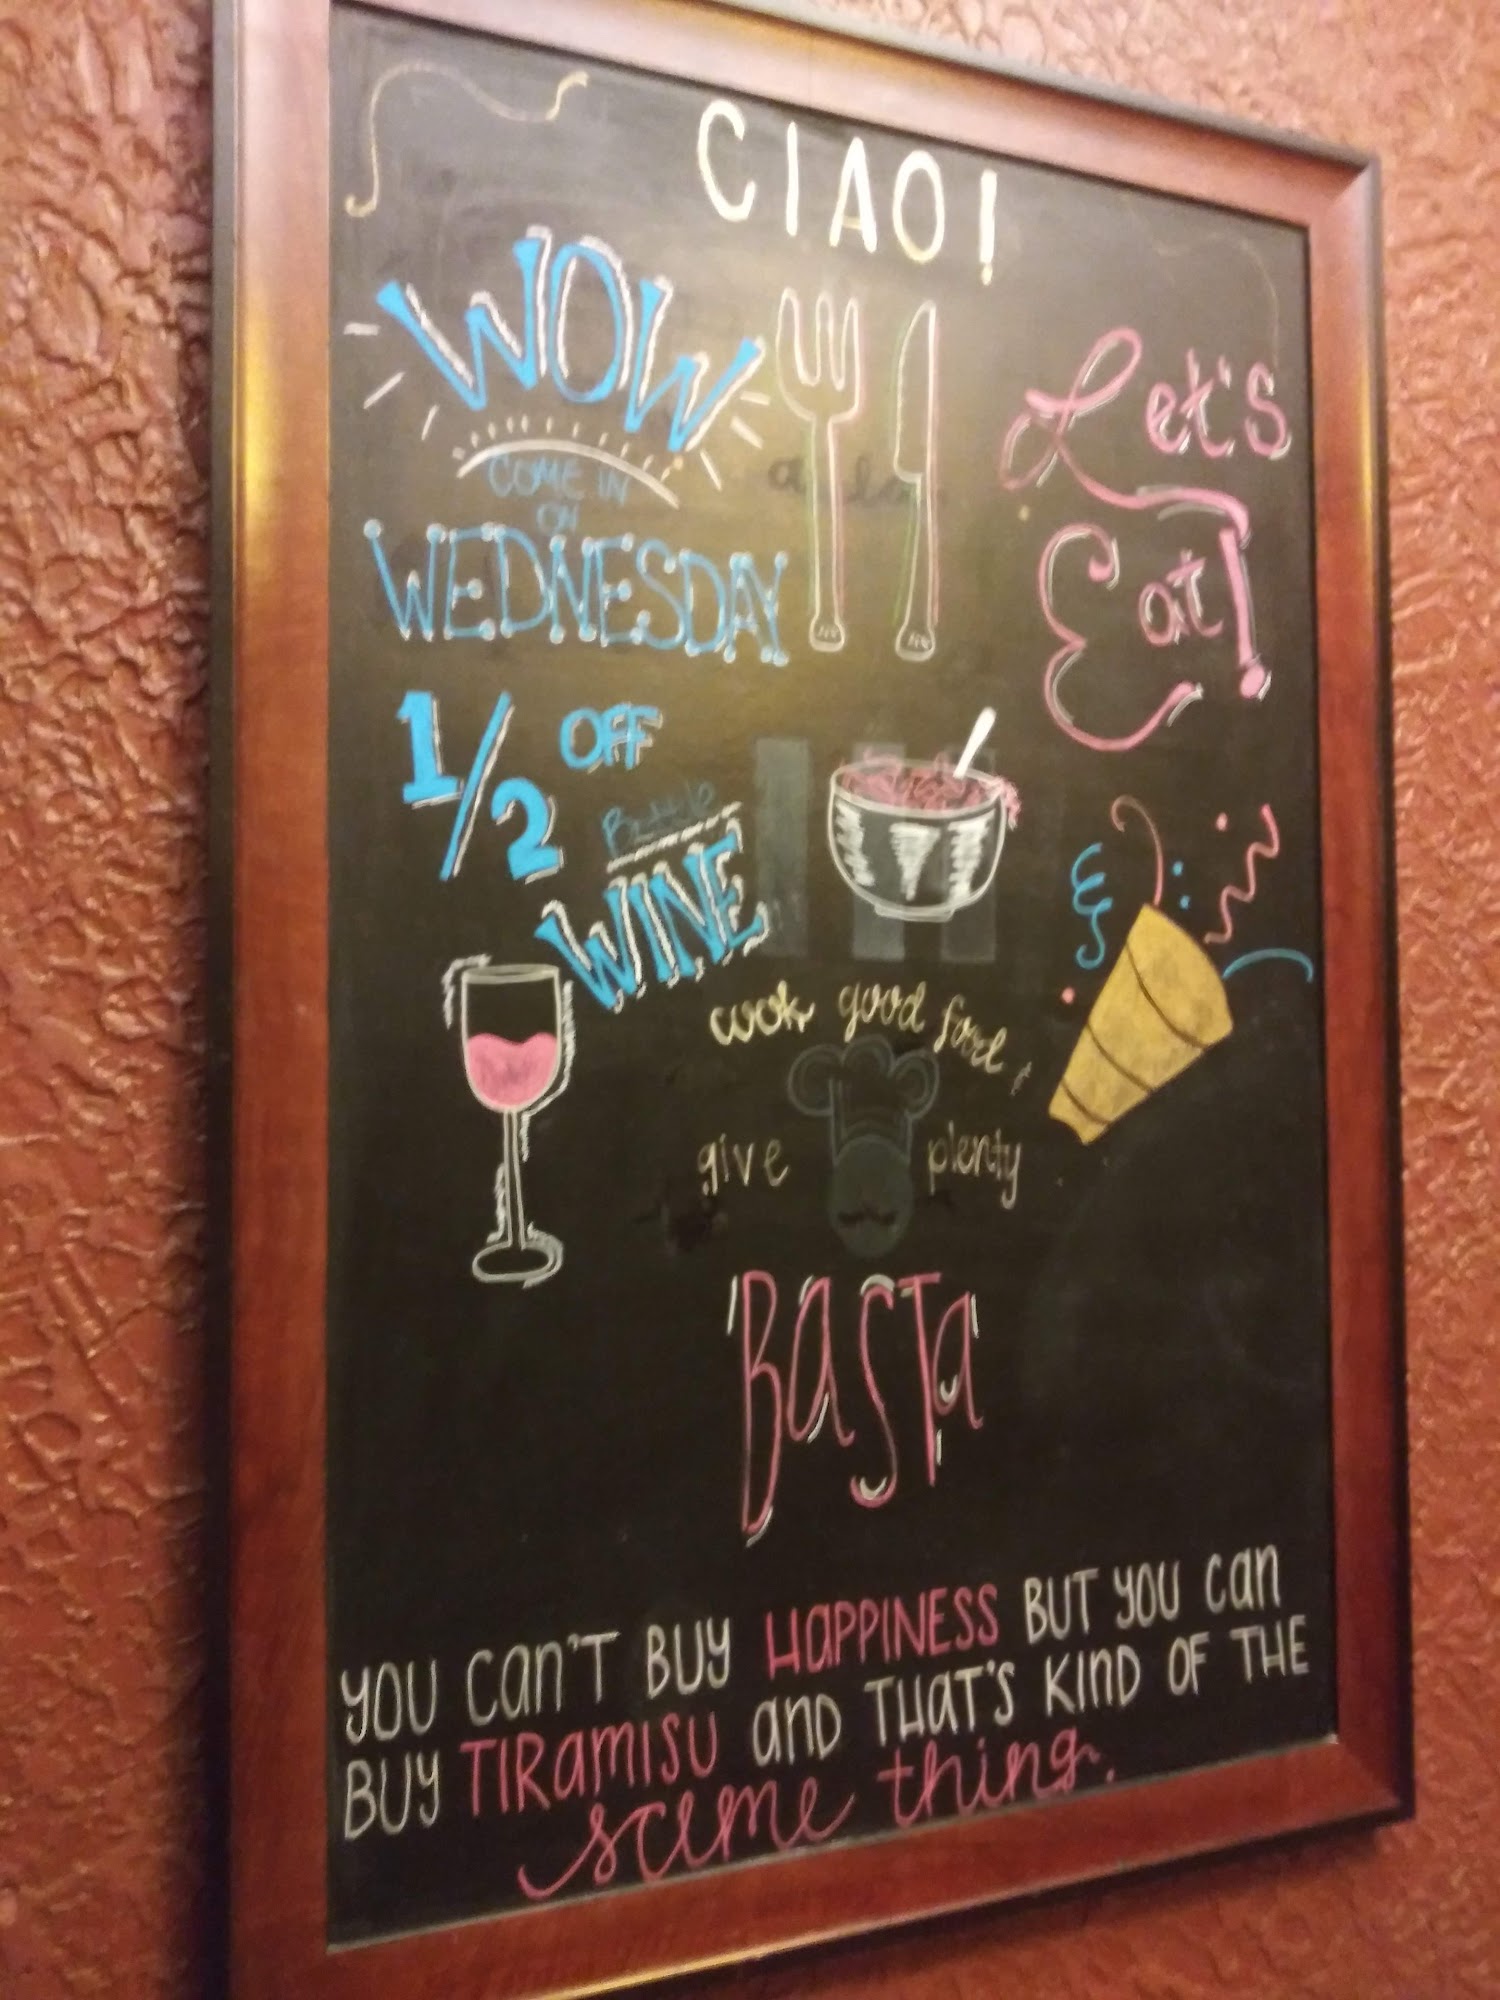 CIAO!
WOW
COME IN
ON
WEDNESDAY
1/2 OFF
Bottle
WINE
Let's
Eat!
cook good food,
give plenty
BASTA
YOU CAN'T BUY HAPPINESS BUT YOU CAN
BUY TIRAMISU AND THAT'S KIND OF THE
same thing.